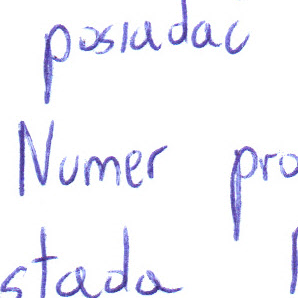 posiadać
Numer pro
stada